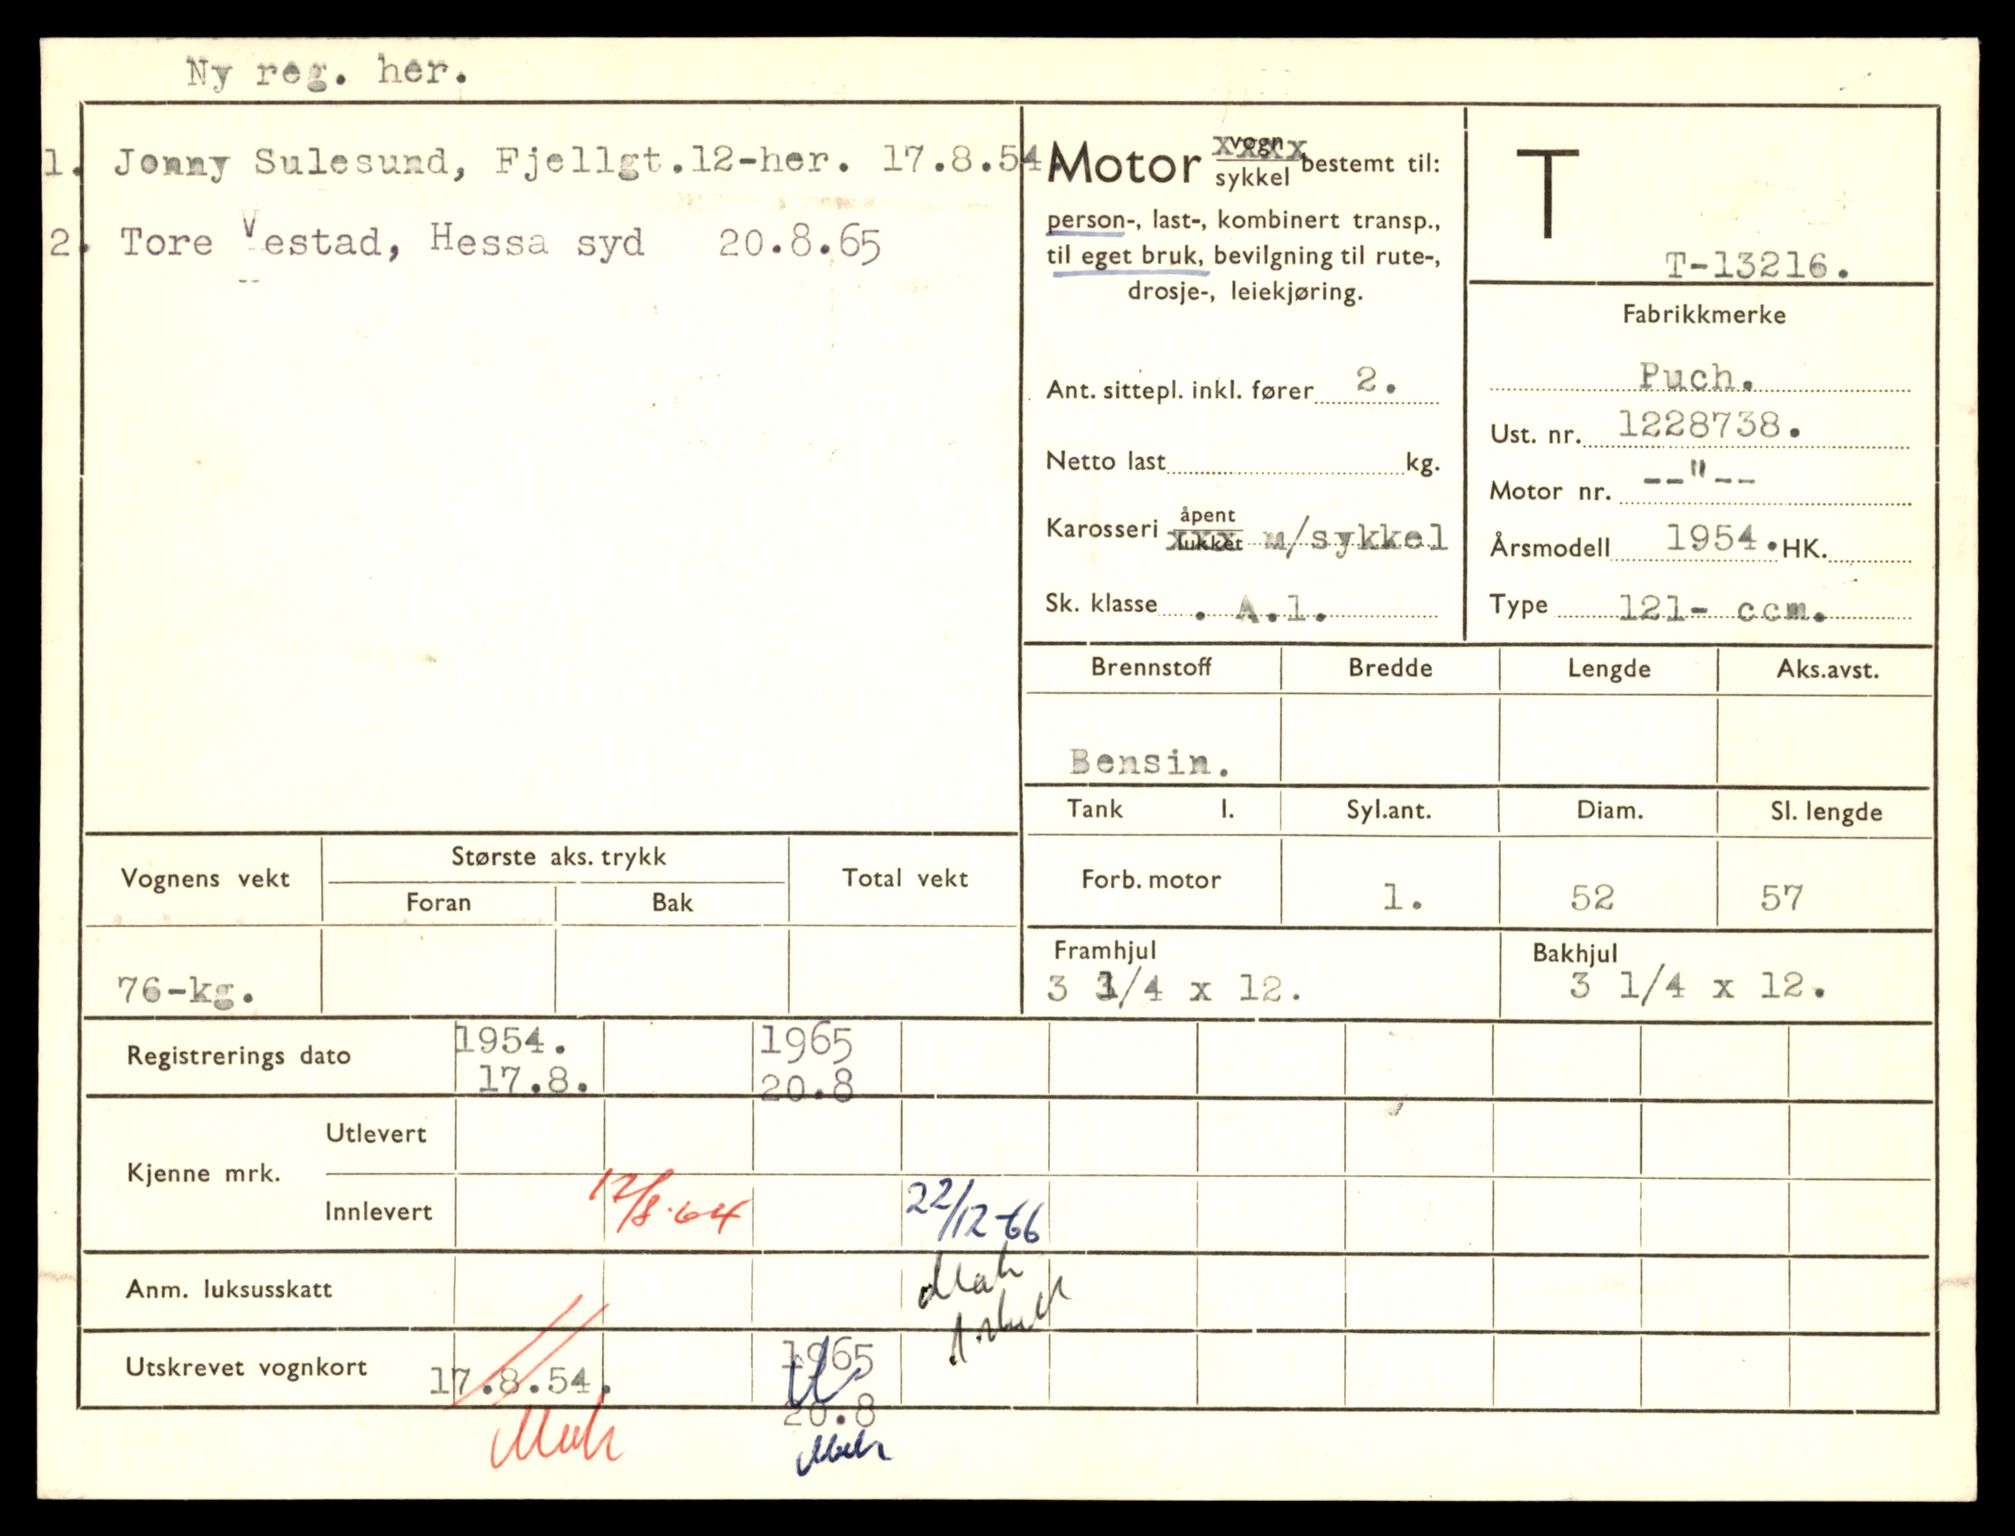 Ny reg. her.
1. Jonny Sulesund, Fjellgt.12-her. 17.8.54.
2. Tore Vestad, Hessa syd 20.8.65
Motor vogn xxxx sykkel bestemt til:
person-, last-, kombinert transp.,
til eget bruk, bevilgning til rute-,
drosje-, leiekjøring.
Ant. sittepl. inkl. fører 2.
Netto last kg.
Karosseri åpent lukket xxx m/sykkel
Sk. klasse . A.1.
T
T-13216.
Fabrikkmerke
Puch.
Ust. nr. 1228738.
Motor nr. --"--
Årsmodell 1954. HK.
Type 121- ccm.
Brennstoff Bredde Lengde Aks.avst.
Bensin.
Tank l. Syl.ant. Diam. Sl. lengde
Forb. motor 1. 52 57
Framhjul Bakhjul
3 1/4 x 12. 3 1/4 x 12.
Vognens vekt Største aks. trykk Total vekt
Foran Bak
76-kg.
Registrerings dato 1954. 1965
17.8. 20.8
Kjenne mrk. Utlevert
Innlevert 17/8.64 22/12-66
Anm. luksusskatt
Utskrevet vognkort 17.8.54. 1965
20.8